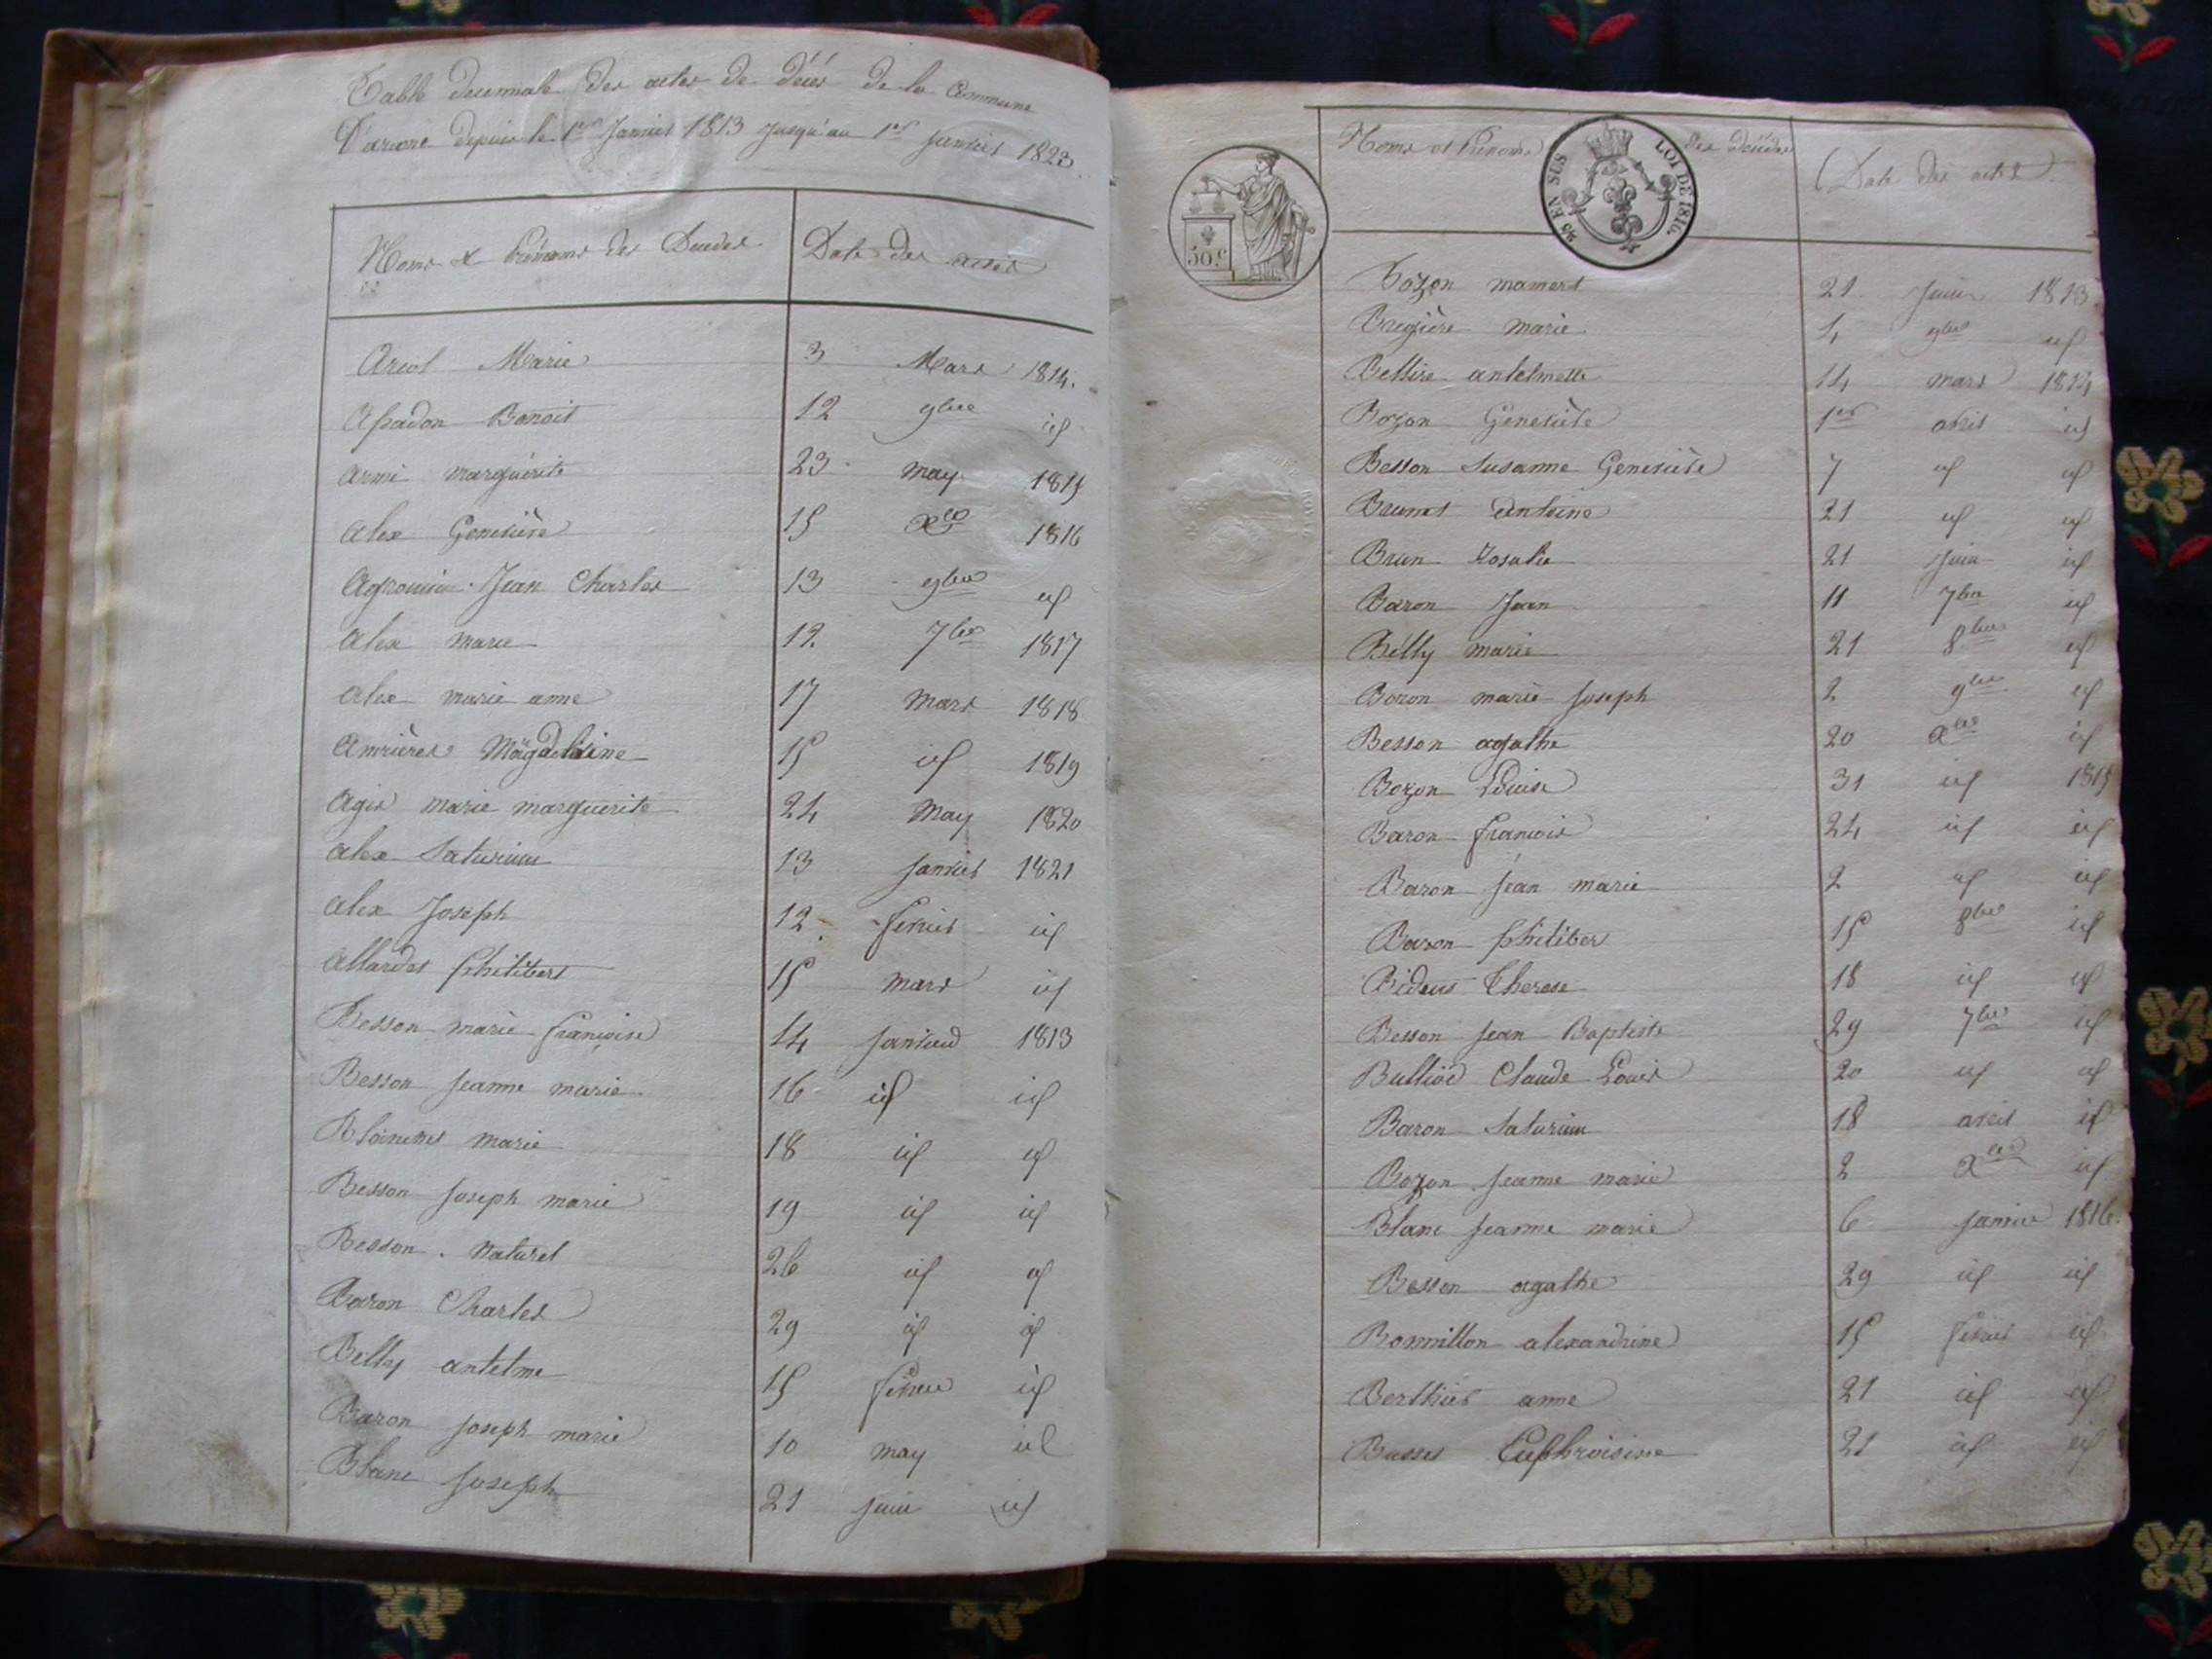 Table decennale des actes de décès de la Commune
D'arvanc depuis le 1er Janvier 1813 jusqu'au 1er janvier 1823.
Noms & Prénoms des Décédés Date des actes
Marie 3 Mars 1814.
Benoit 12 9bre id
marguerite 23 may 1815
Alex Geneviève 15 Xbre 1816
Jean Charles 13 9bre id
Alex marie 12 7bre 1817
Alex marie anne 17 mars 1818
Magdelaine 15 id 1819
Agie marie marguerite 24 may 1820
Alex Saturnin 13 janvier 1821
Alex Joseph 12 fevrier id
Allardet philibert 15 mars id
Besson marie françoise 14 janvier 1813
Besson jeanne marie 16 id id
marie 18 id id
Besson joseph marie 19 id id
Besson naturel 26 id id
Baron Charles 29 id id
Billy antelme 15 fevrier id
Baron joseph marie 10 may id
Blanc joseph 21 juin id
50.c
Noms et Prénoms des décédés Date des actes
25 EN SUS LOI DE 1816.
Bozon mamert 21 juin 1813.
marie 4 9bre id
antelmette 14 mars 1814
Bozon Geneviève 1er avril id
Besson Susanne Geneviève 7 id id
Brunet antoine 21 id id
Brun Rosalie 21 juin id
Baron Jean 11 7bre id
Billy marie 21 8bre id
Bozon marie joseph 2 9bre id
Besson agathe 20 Xbre id
Bozon Louise 31 id 1815
Baron françois 24 id id
Baron jean marie 2 id id
Bozon philiber 15 8bre id
Therese 18 id id
Besson jean Baptiste 29 7bre id
Bulliod Claude Louis 20 id id
Baron Saturnin 18 avril id
Bozon jeanne marie 2 Xbre id
Blanc jeanne marie 6 janvier 1816.
Besson agathe 29 id id
Bonnillon alexandrine 15 fevrier id
Berthier anne 21 id id
Busset Euphroisine 21 id id